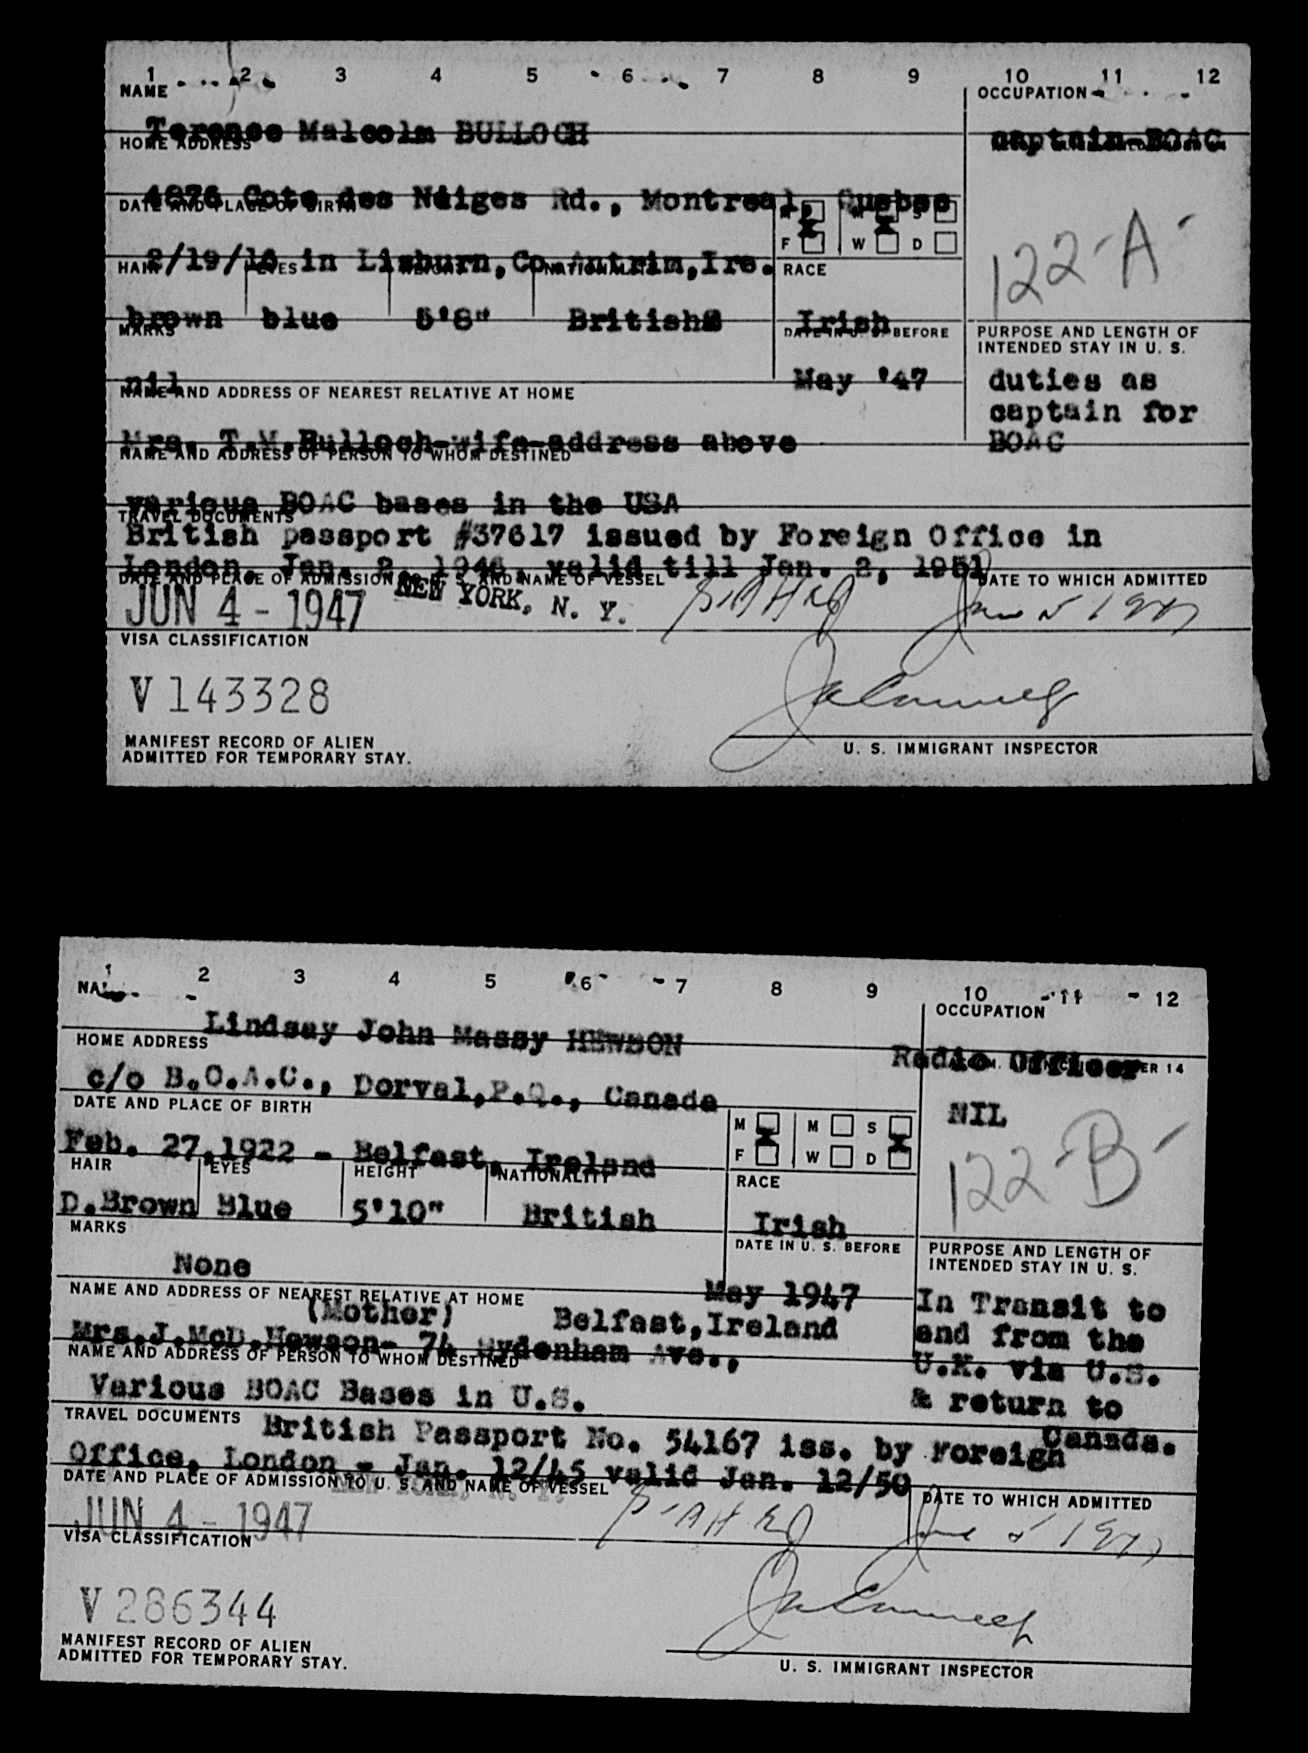 1 2 3 4 5 6 7 8 9 10 11 12
NAME
OCCUPATION
Terence Malcolm BULLOCH
captain-BOAC
HOME ADDRESS
4876 Cote des Neiges Rd., Montreal, Quebec
DATE AND PLACE OF BIRTH
M M S
F W D
2/19/16 in Lisburn, Co. Antrim, Ire.
122-A-
HAIR EYES HEIGHT NATIONALITY RACE
brown blue 5'8" British Irish
MARKS
DATE IN U. S. BEFORE
PURPOSE AND LENGTH OF
INTENDED STAY IN U. S.
nil
May '47
duties as
captain for
BOAC
NAME AND ADDRESS OF NEAREST RELATIVE AT HOME
Mrs. T.M.Bulloch-wife-address above
NAME AND ADDRESS OF PERSON TO WHOM DESTINED
various BOAC bases in the USA
TRAVEL DOCUMENTS
British passport #37617 issued by Foreign Office in
London, Jan. 2, 1946, valid till Jan. 2, 1951
DATE AND PLACE OF ADMISSION TO U. S. AND NAME OF VESSEL
DATE TO WHICH ADMITTED
JUN 4 - 1947 NEW YORK, N. Y. June 5 1947
VISA CLASSIFICATION
V 143328
MANIFEST RECORD OF ALIEN
ADMITTED FOR TEMPORARY STAY.
U. S. IMMIGRANT INSPECTOR
1 2 3 4 5 6 7 8 9 10 11 12
OCCUPATION
Lindsay John Massy HEWSON
Radio Officer
HOME ADDRESS
c/o B.O.A.C., Dorval,P.Q., Canada
NIL
DATE AND PLACE OF BIRTH
M M S
F W D
Feb. 27,1922 - Belfast, Ireland
122-B-
HAIR EYES HEIGHT NATIONALITY RACE
D.Brown Blue 5'10" British Irish
MARKS
DATE IN U. S. BEFORE
PURPOSE AND LENGTH OF
INTENDED STAY IN U. S.
None
May 1947
In Transit to
and from the
U.K. via U.S.
& return to
Canada.
NAME AND ADDRESS OF NEAREST RELATIVE AT HOME
(Mother) Belfast,Ireland
Mrs.J.McD.Hewson- 74 Sydenham Ave.,
NAME AND ADDRESS OF PERSON TO WHOM DESTINED
Various BOAC Bases in U.S.
TRAVEL DOCUMENTS
British Passport No. 54167 iss. by Foreign
Office, London - Jan. 12/45 valid Jan. 12/50
DATE AND PLACE OF ADMISSION TO U. S. AND NAME OF VESSEL
DATE TO WHICH ADMITTED
JUN 4 - 1947 June 5 1947
VISA CLASSIFICATION
V 286344
MANIFEST RECORD OF ALIEN
ADMITTED FOR TEMPORARY STAY.
U. S. IMMIGRANT INSPECTOR